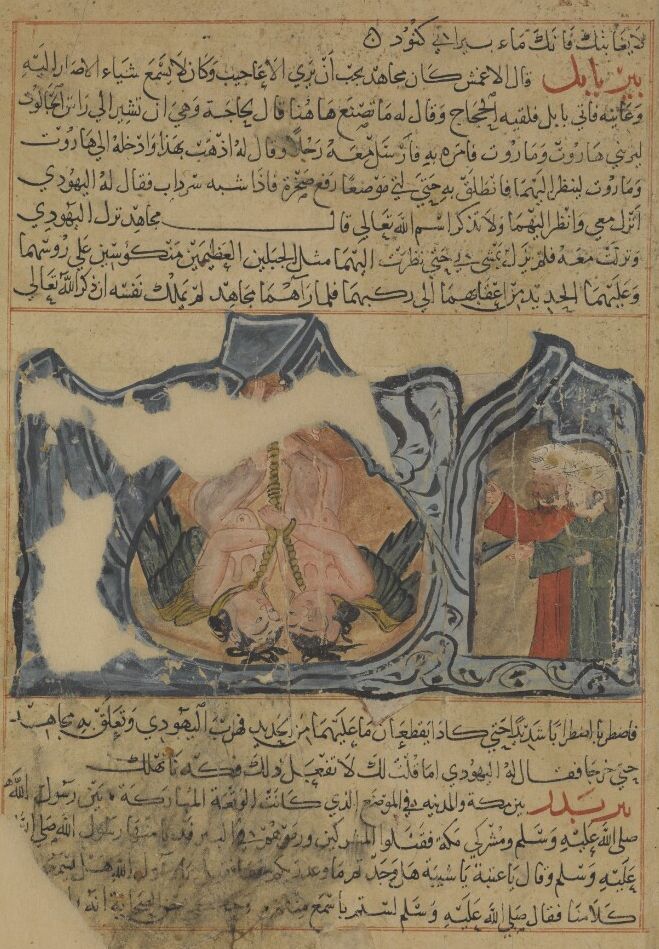 لا يغاثنك فانك ماء بير ابي كنود
بير بابل قال الاعمش كان مجاهد يحب ان يرى الاعاجيب وكان لا يسمع شياء الا صار اليه
وعاينه فاتى بابل فلقيه الحجاج وقال له ما تصنع هاهنا قال لحاجة وهي ان تشير الى راس الجالوت
ليريني هاروت وماروت فامره به فارسل معه رجلا وقال له اذهب بهذا وادخله الى هاروت
وماروت لينظر اليهما فانطلق به حتى اتى موضعا رفع صخرة فاذا شبه سرداب فقال له اليهودي
انزل معي وانظر اليهما ولا تذكر اسم الله تعالى قال مجاهد نزل اليهودي
ونزلت معه فلم نزل نمشي حتى نظرت اليهما مثل الجبلين العظيمين منكوسين على روسهما
وعليهما الحديد من اعقابهما الى ركبهما فلما راهما مجاهد لم يملك نفسه ان ذكر الله تعالى
فاضطربا اضطرابا شديدا حتى كادا يقطعان ما عليهما من الحديد فهرب اليهودي وتعلق به مجاهد
حتى خرجا فقال له اليهودي اما قلت لك لا تفعل ذلك فكدنا نهلك
بير بدر بين مكة والمدينه في الموضع الذي كانت الوقعة المباركة بين رسول الله
صلى الله عليه وسلم ومشركي مكة فقتلوا المشركين ورموهم في البير رسول الله صلى الله
عليه وسلم وقال يا عتبة يا شيبة هل وجدتم ما وعد ربكم
كلامنا فقال صلى الله عليه وسلم لستم باسمع منهم